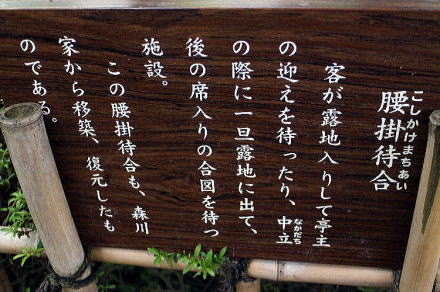 こしかけまちあい
腰掛待合
客が露地入りして亭主
の迎えを待ったり、中立
なかだち
の際に一旦露地に出て、
後の席入りの合図を待つ
施設。
この腰掛待合も、森川
家から移築、復元したも
のである。